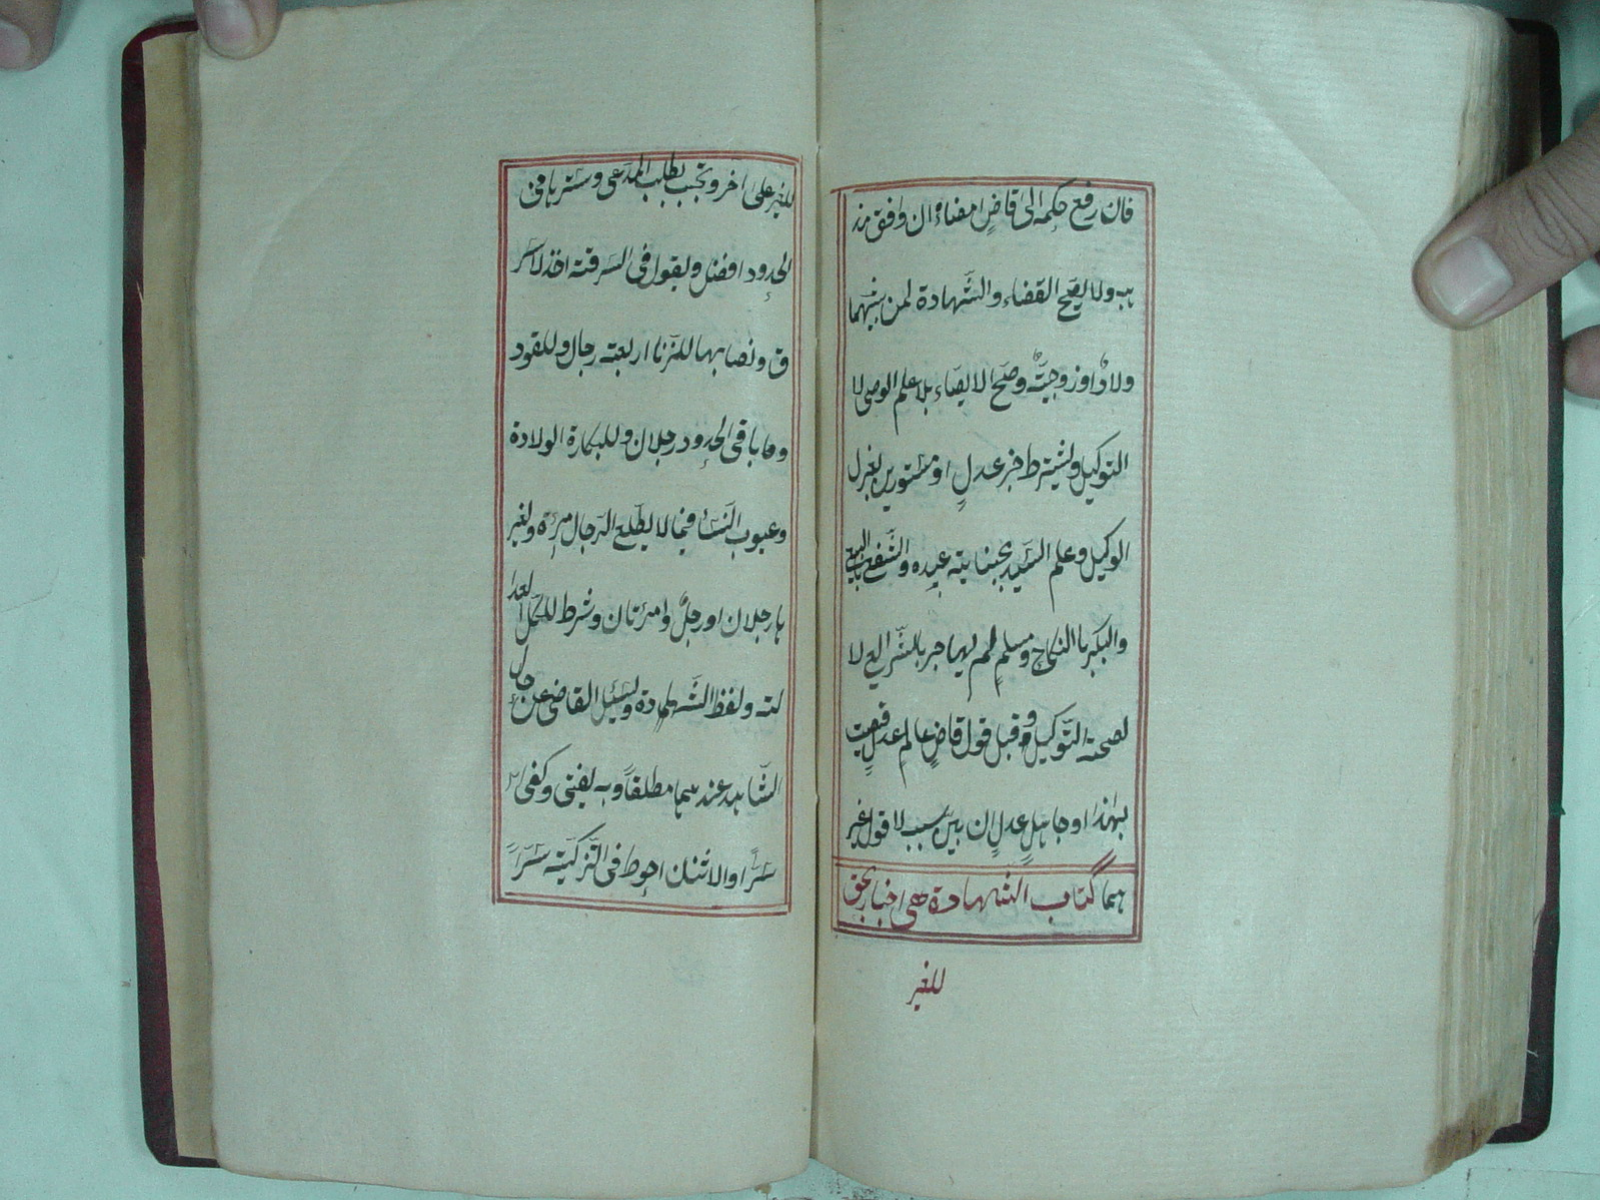 فان رفع حكمه الى قاضٍ امضاه ان وافق مذ
هبه ولا يصح القضاء والشّهادة لمن بينهما
ولادٌ او زوجيّةٌ وصحّ الايصاء بلا علم الوصى لا
التوكيل ويشترط خبر عدلٍ او مستورين لعزل
الوكيل وعلم السّيد بجناية عبده والشّفيع بالبيع
والبكر باالنكاح ومسلمٍ لم يهاجر بالشّرايع لا
لصحة التّوكيل وقبل قول قاضٍ عالم عدلٍ قضيت
بهذا او جاهلٍ عدلٍ ان بيّن سببه لا قول غير
هما كتاب الشهادة هى اخبار بحق
للغير
للغير على آخر وتجب بطلب المدّعى وسترها فى
الحدود افضل ويقول فى السّرقة اخذ لا سر
ق ونصابها للزّنا اربعة رجال وللقود
وما باقى الحدود رجلان وللبكارة الولادة
وعيوب النّساء فيما لا يطّلع الرّجال مرءة ولغير
ها رجلان او رجلٌ وامرءتان وشرط للكلّ العدا
لته ولفظ الشّهادة ويسئل القاضى عن حال
الشّاهد عندهما مطلقاً وبه يفتى وكفى
سرّاً والاثنان احوط فى التّزكية سرّاً